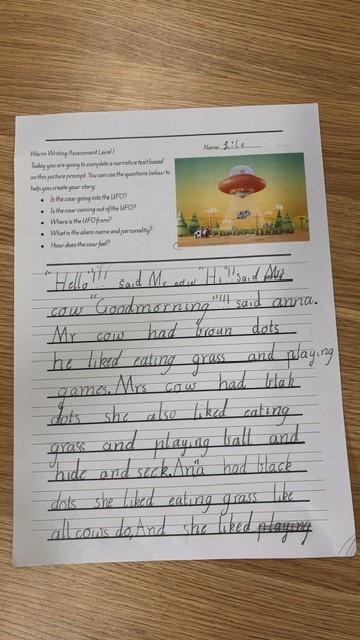 Warm Writing Assessment Level 1
Name Lila
Today you are going to complete a narrative text based
on this picture prompt. You can use the questions below to
help you create your story:
• Is the cow going into the UFO?
• Is the cow coming out of the UFO?
• Where is the UFO from?
• What is the aliens name and personality?
• How does the cow feel?
"Hello"!!! said Mr cow "Hi"!! said Mrs
cow "Goodmorning"!!! said anna.
Mr cow had broun dots
he liked eating grass and playing
games. Mrs cow had blak
dots she also liked eating
grass and playing ball and
hide and seek. Ana had black
dots she liked eating grass like
all cows do, And she liked playing